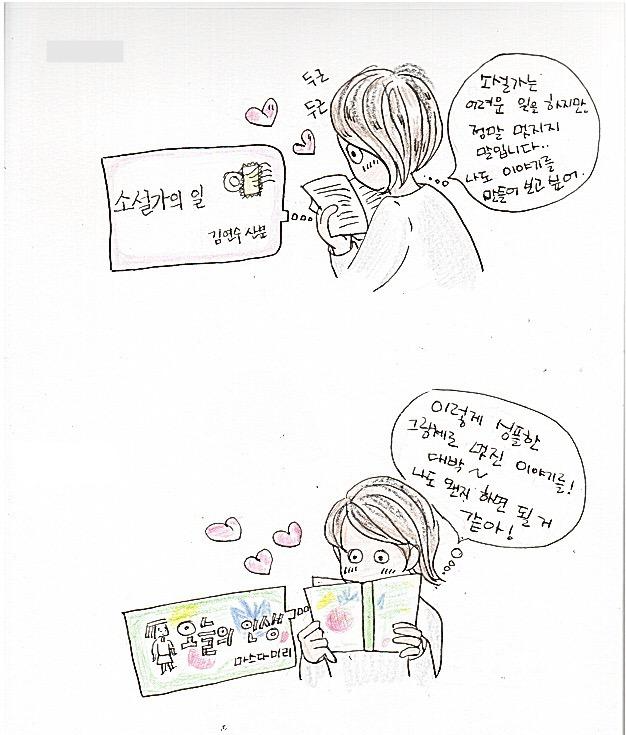 두근
두근
소설가는
어려운 일을 하지만,
정말 멋지지
말입니다..
나도 이야기를
만들어 보고 싶어.
소설가의 일
김연수 산문
이렇게 심플한
그림체로 멋진 이야기를!
대박~
나도 왠지 하면 될 거
같아!
오늘의 인생
마스다미리